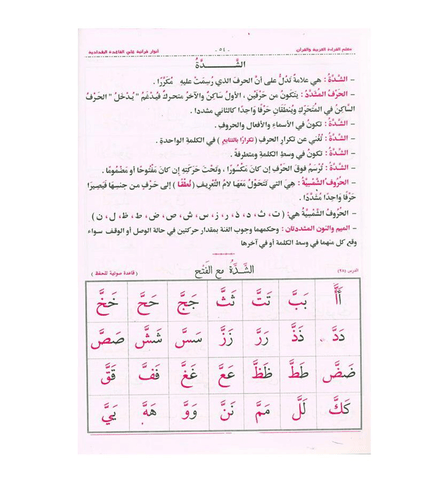 معلم القراءة العربية والقرآن - ٥٤ - أنوار قرآنية على القاعدة البغدادية
الشَّدَّةُ
- الشَّدَّةُ : هي علامةٌ تَدُلُّ على أنَّ الحرفَ الذي رُسِمَتْ عليهِ مُكَرَّرًا .
- الحَرْفُ المُشَدَّدُ : يتكونُ من حَرْفَيْنِ ، الأولُ ساكنٌ والآخرُ متحركٌ فَيُدغَمُ " يُدخَلُ " الحَرْفُ
السَّاكِنُ في المُتَحَرِّكِ ويُنطَقَانِ حَرْفًا واحدًا كالثاني مشددا .
- الشَّدَّةُ : تكونُ في الأسماءِ والأفعالِ والحروفِ .
- الشَّدَّةُ : تُغني عن تكرارِ الحرفِ (تكرارًا بالتتابع ) في الكلمةِ الواحدةِ .
- الشَّدَّةُ : تكونُ في وسطِ الكلمةِ ومتطرفة .
- الشَّدَّةُ : تُرسَمُ فوقَ الحرفِ إن كانَ مَكْسُورًا ، وتَحْتَ حَرَكَتِهِ إن كانَ مَفْتُوحًا أو مَضْمُومًا .
- الحُرُوفُ الشَّمْسِيَّةُ : هِيَ التي تَتَحَوَّلُ مَعَهَا لامُ التَّعْرِيفِ ( نُطْقًا ) إلى حَرْفٍ من جنسِهَا فَيَصِيرَا
حَرْفًا واحدًا مُشَدَّدًا .
- الحُرُوفُ الشَّمْسِيَّةُ هي: ( ت ، ث ، د ، ذ ، ر ، ز ، س ، ش ، ص ، ض ، ط ، ظ ، ل ، ن )
- الميم والنون المشددتان : وحكمهما وجوب الغنة بمقدار حركتين في حالة الوصل أو الوقف سواء
وقع كل منهما في وسط الكلمة أو في آخرها
الدرس (٢٨) الشَّدَّةُ مع الفَتْحِ ( قاعدة صوتية للحفظ )
أَأَّ بَبَّ تَتَّ ثَثَّ جَجَّ حَحَّ خَخَّ
دَدَّ ذَذَّ رَرَّ زَزَّ سَسَّ شَشَّ صَصَّ
ضَضَّ طَطَّ ظَظَّ عَعَّ غَغَّ فَفَّ قَقَّ
كَكَّ لَلَّ مَمَّ نَنَّ وَوَّ هَهَّ يَيَّ